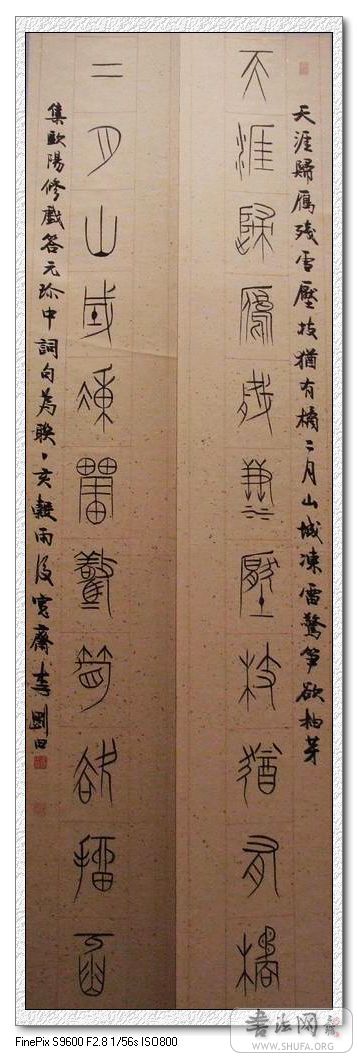 天涯歸鴈残雪壓枝猶有橘二月山城凍雷驚笋欲抽芽
天涯歸鴈殘雪壓枝猶有橘
二月山城凍雷驚笋欲抽芽
集歐陽修戲答元珍中詞句為聯丁亥穀雨後寬齋李剛田
书法网
WWW.SHUFA.ORG
FinePix S9600 F2.8 1/56s ISO800